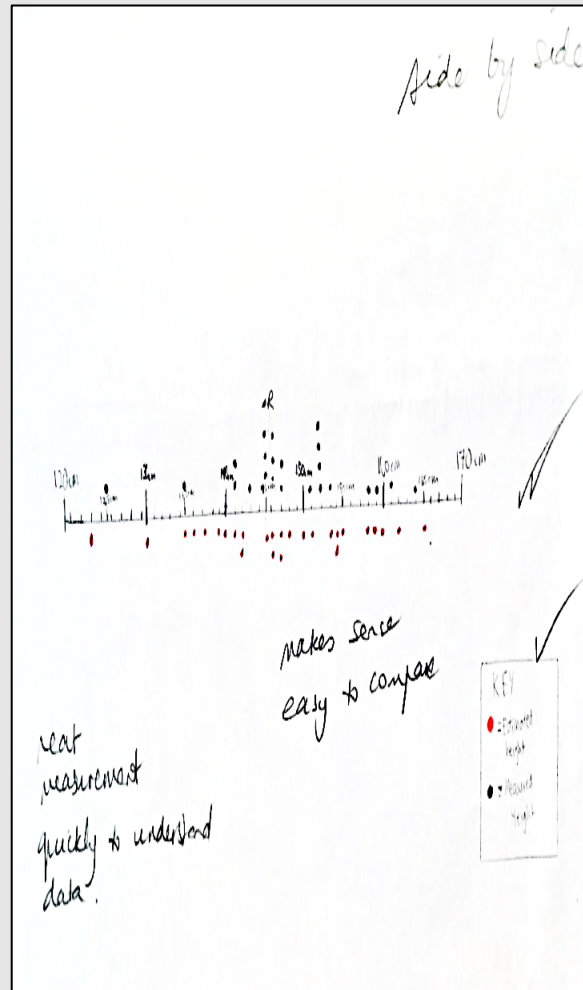 side by side
R
120cm
130cm
150cm
160cm
170cm
makes sense
easy to compare
neat
measurement
quickly to understand
data.
KEY
= Estimated
height
= Measured
Height